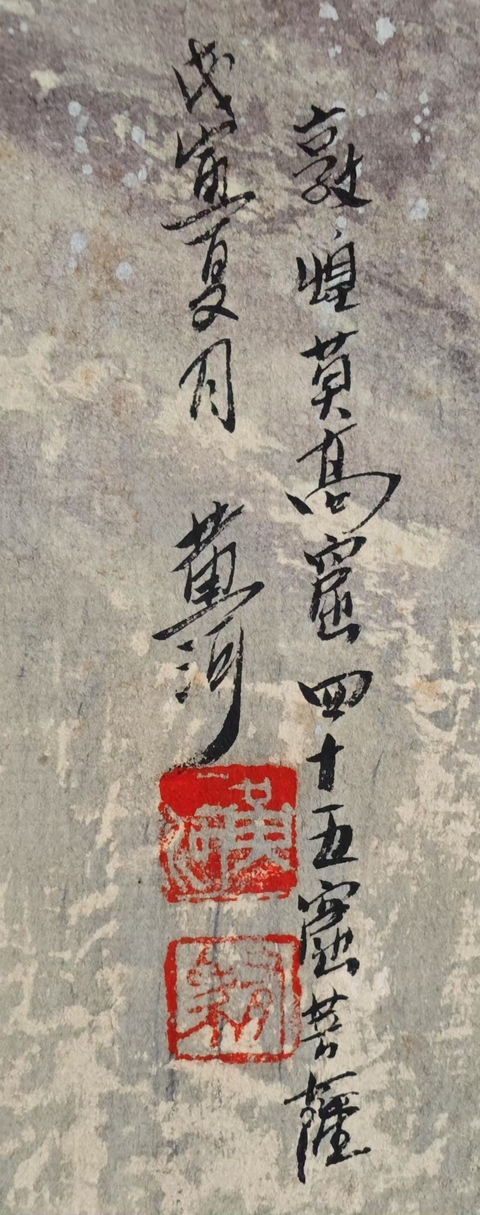 敦煌莫高窟四十五窟菩薩
戊寅夏月 黄河
黄河